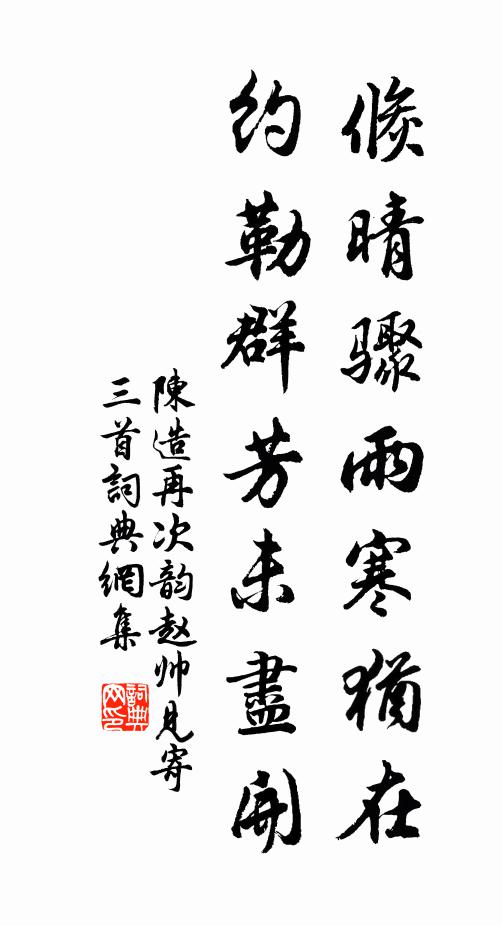 倐晴驟雨寒猶在
約勒群芳未盡開
陳造再次韵赵帅見寄
三首詞典網集
詞典
网印